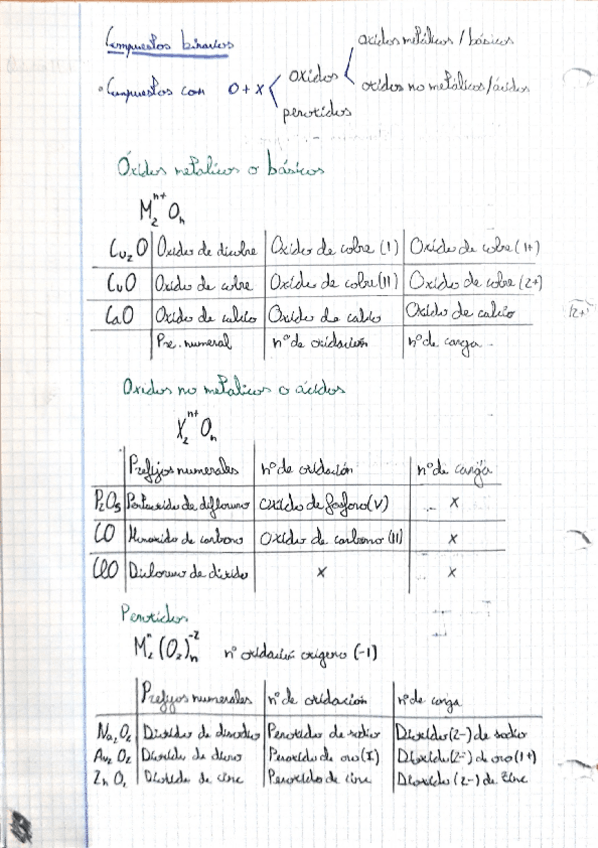 Compuestos binarios
óxidos metálicos / básicos
• Compuestos con O + X óxidos
óxidos no metálicos / ácidos
peroxidos
Óxidos metalicos o básicos
M₂ⁿ⁺Oₙ
Cu₂O Oxido de dicobre Oxido de cobre (I) Oxido de cobre (1+)
CuO Oxido de cobre Oxido de cobre (II) Oxido de cobre (2+)
CaO Oxido de calcio Oxido de calcio Oxido de calcio
Pre. numeral nº de oxidación nº de carga
Oxidos no metalicos o ácidos
X₂ⁿ⁺Oₙ
Prefijos numerales nº de oxidación nº de carga
P₂O₅ Pentaoxido de oxido de fosforo (V) x
CO Monoxido de carbono Oxido de carbono (II) x
x x
Peroxidos
M₂ⁿ(O₂)ₙ⁻² nº oxidación oxigeno (-1)
Prefijos numerales nº de oxidación nº de carga
Na₂O₂ Dioxido de disodio Peroxido de sodio Dioxido (2-) de sodio
Au₂O₂ Dioxido de dioro Peroxido de oro (I) Dioxido (2-) de oro (1+)
ZnO₂ Dioxido de cinc Peroxido de cinc Dioxido (2-) de zinc